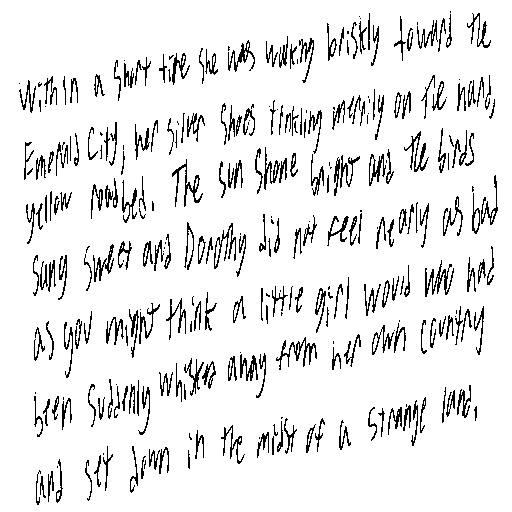 Within a short time she was walking briskly toward the
Emerald City, her silver shoes tinkling merrily on the hard,
yellow roadbed. The sun shone bright and the birds
sang sweet and Dorothy did not feel nearly as bad
as you might think a little girl would who had
been suddenly whisked away from her own country
and set down in the midst of a strange land.